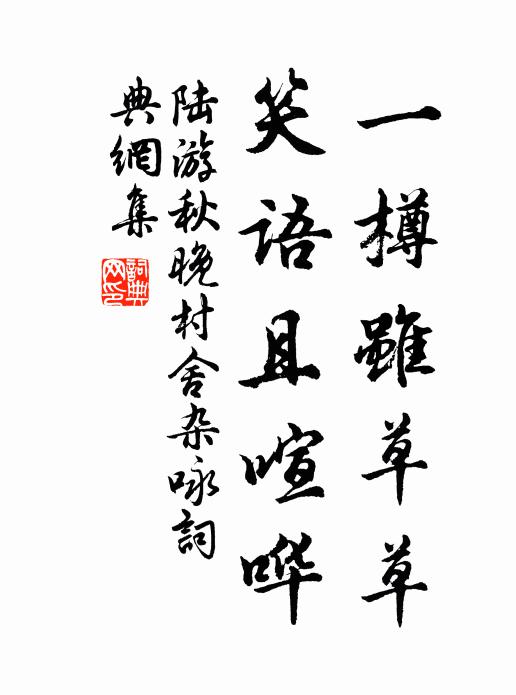 一樽雖草草
笑语且喧哗
陆游秋晚村舍杂咏詞
典網集
詞典
网印